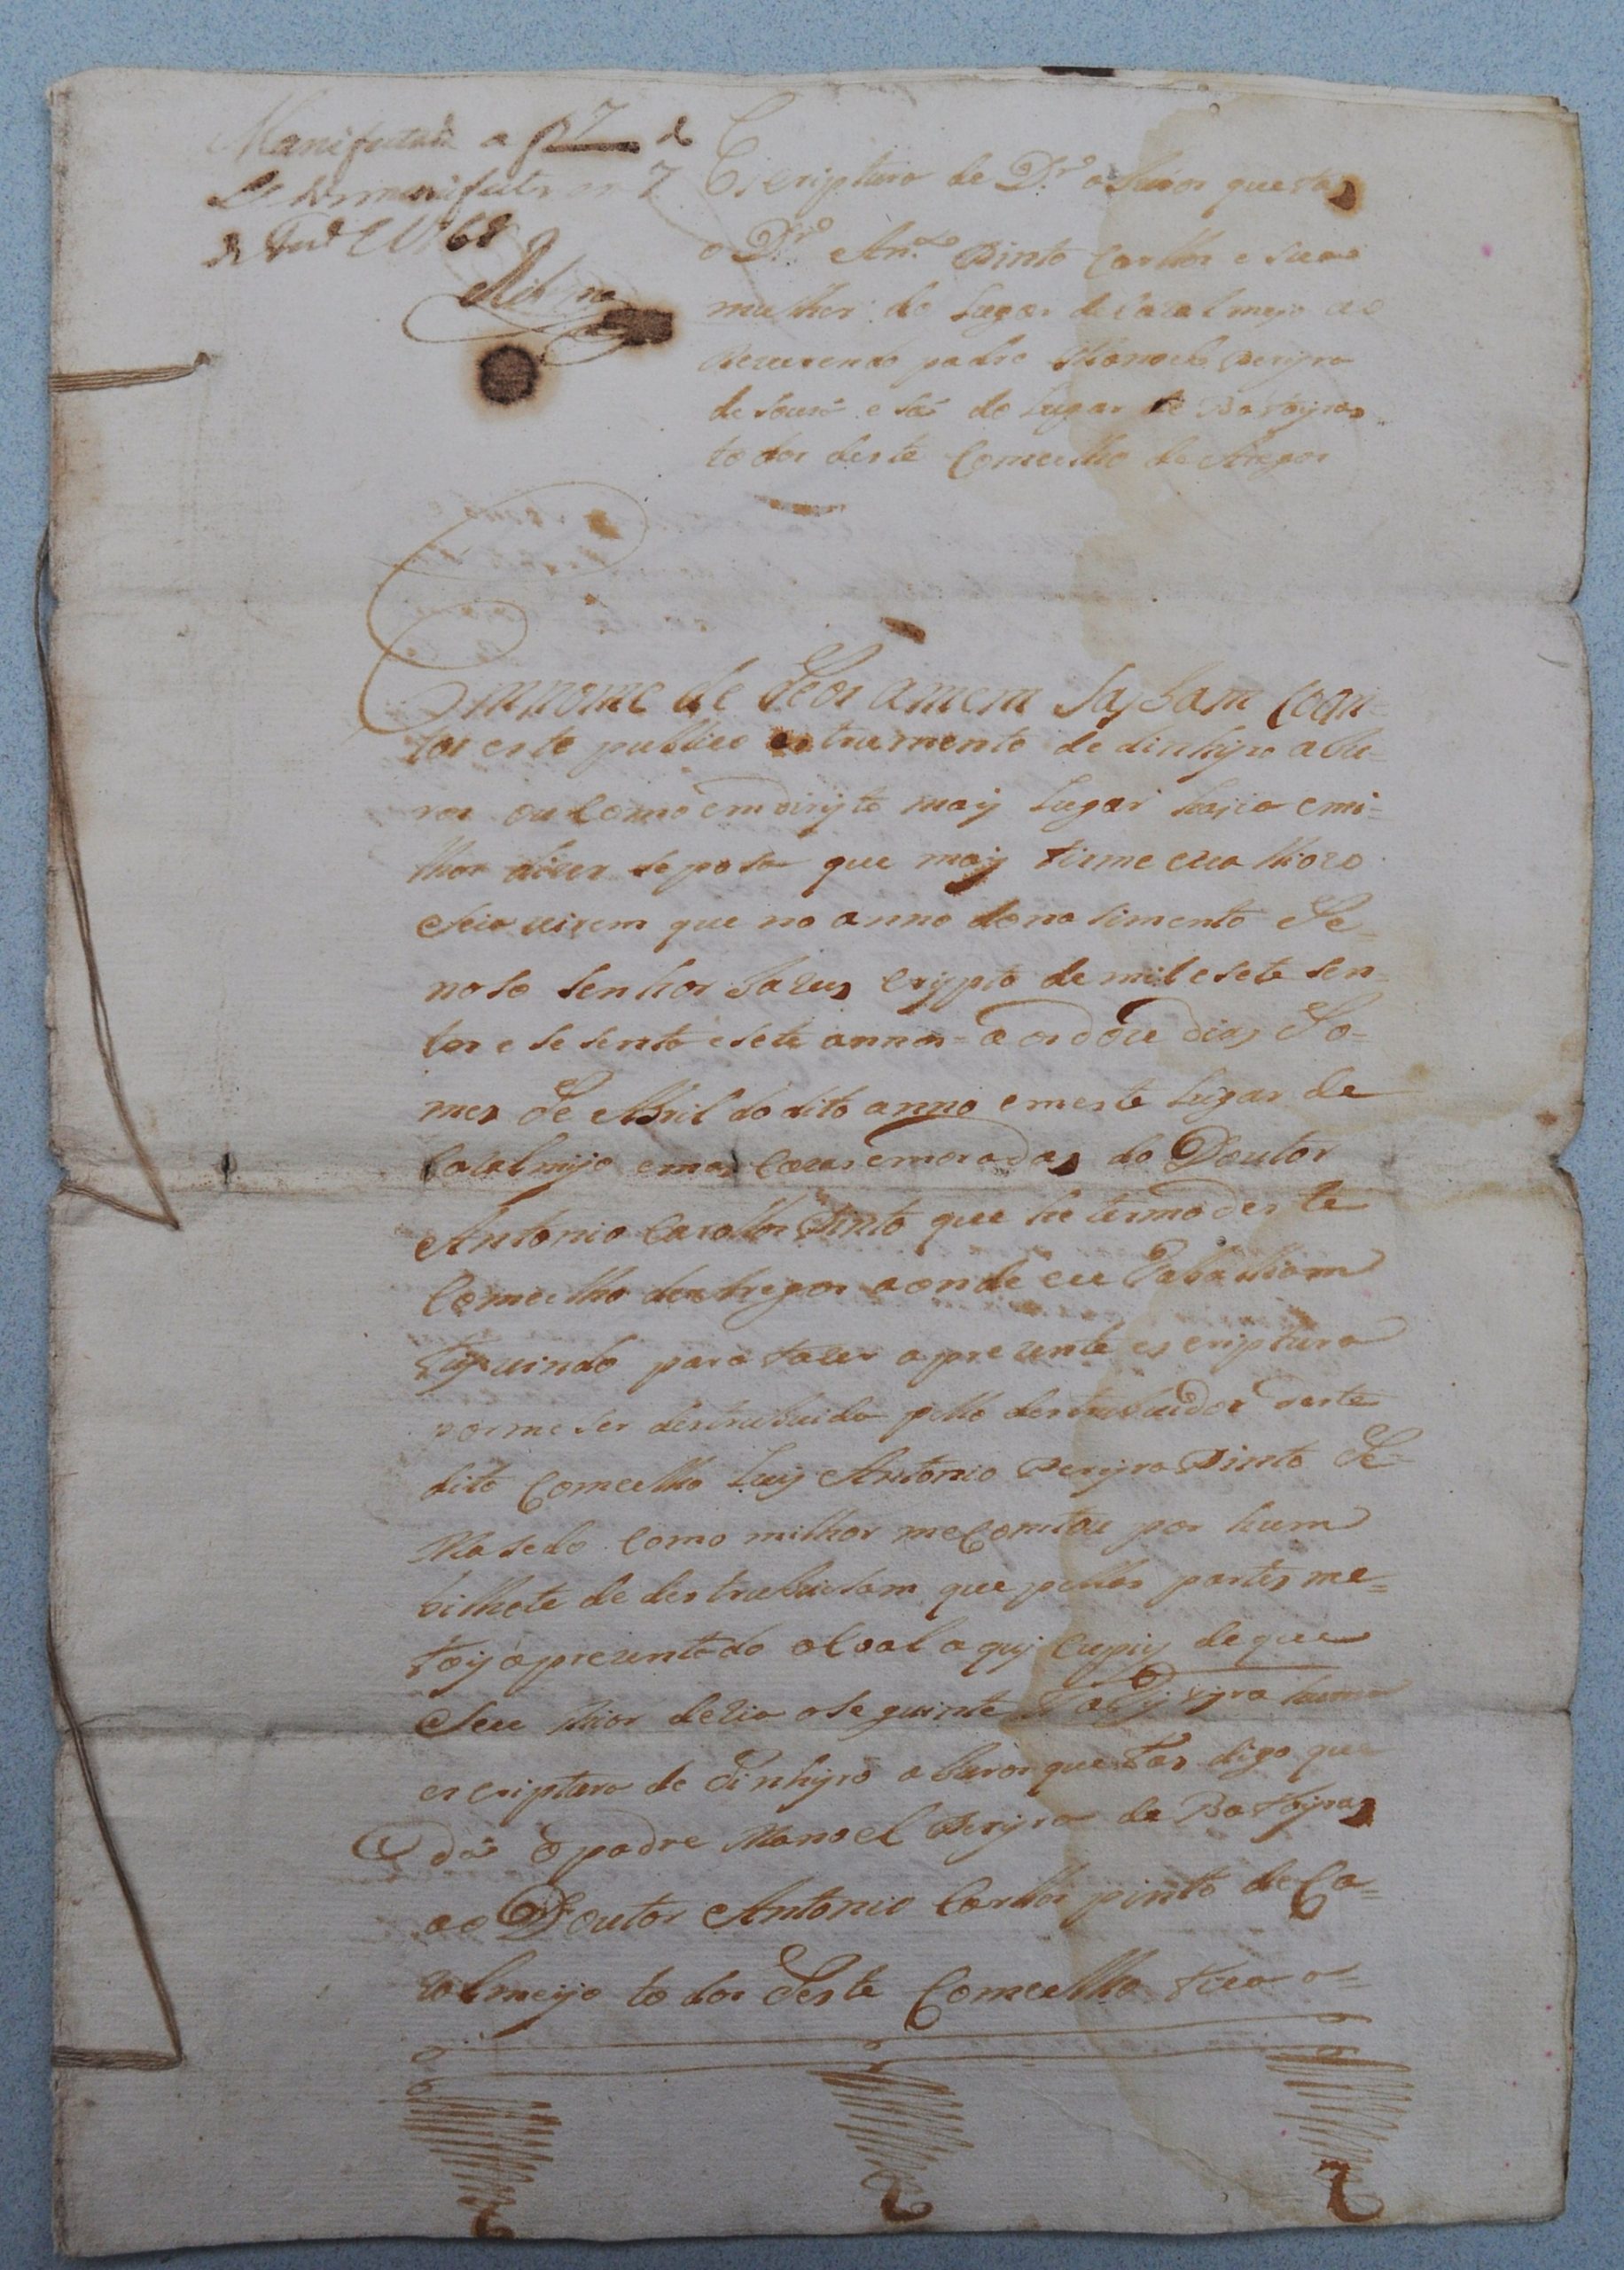 Manifestada a f 7 de
L dos manifestos em 7
de 1768
Ribr.o
Escriptura de Dr.o a Juros que faz
o D.r An.to Pinto Carllos e sua
mulher do Lugar de Cazalmejo ao
Reverendo padre Manoel Pereyra
de e Sá do Lugar de Bastoyras
todos deste Comcelho de Aregos
Em nome de Deos amem Saybam coan=
tos este publico estrumento de dinhyro a Ju=
ros ou como em dirjto maij Lugar haja e mi=
lhor dizer se posa que maij firme e ualliozo
seia virem que no anno do nasimento De=
noso senhor Jazus Crypto de mil e sete sen=
tos e sesenta e sete annos = aos doze dias Do=
mes De Abril do dito anno e meste Lugar de
Cazalmijo e mas Cazas e moradas do Doutor
Antonio Carollos Pinto que he termo deste
Comcelho de Aregos aonde eu Taballiam
fuy vindo para fazer a prezente escriptura
por me ser destrubuida pello destrubuidor deste
dito Comcelho Luis Antonio Pereyra Pinto De=
Masedo como milhor me Comstou por hum
bilhete de destrubuisam que pellas partes me=
foy aprezentado o Coal aquj Cupiey de que
Seu thior dezia o seguinte Taby vyra huma
escriptura de Dinhyro a Juros que faz digo que
dá o padre Manoel Pereyra de Bastoyras
ao Doutor Antonio Carllos pinto de Ca=
zalmeyo todos Deste Comcelho